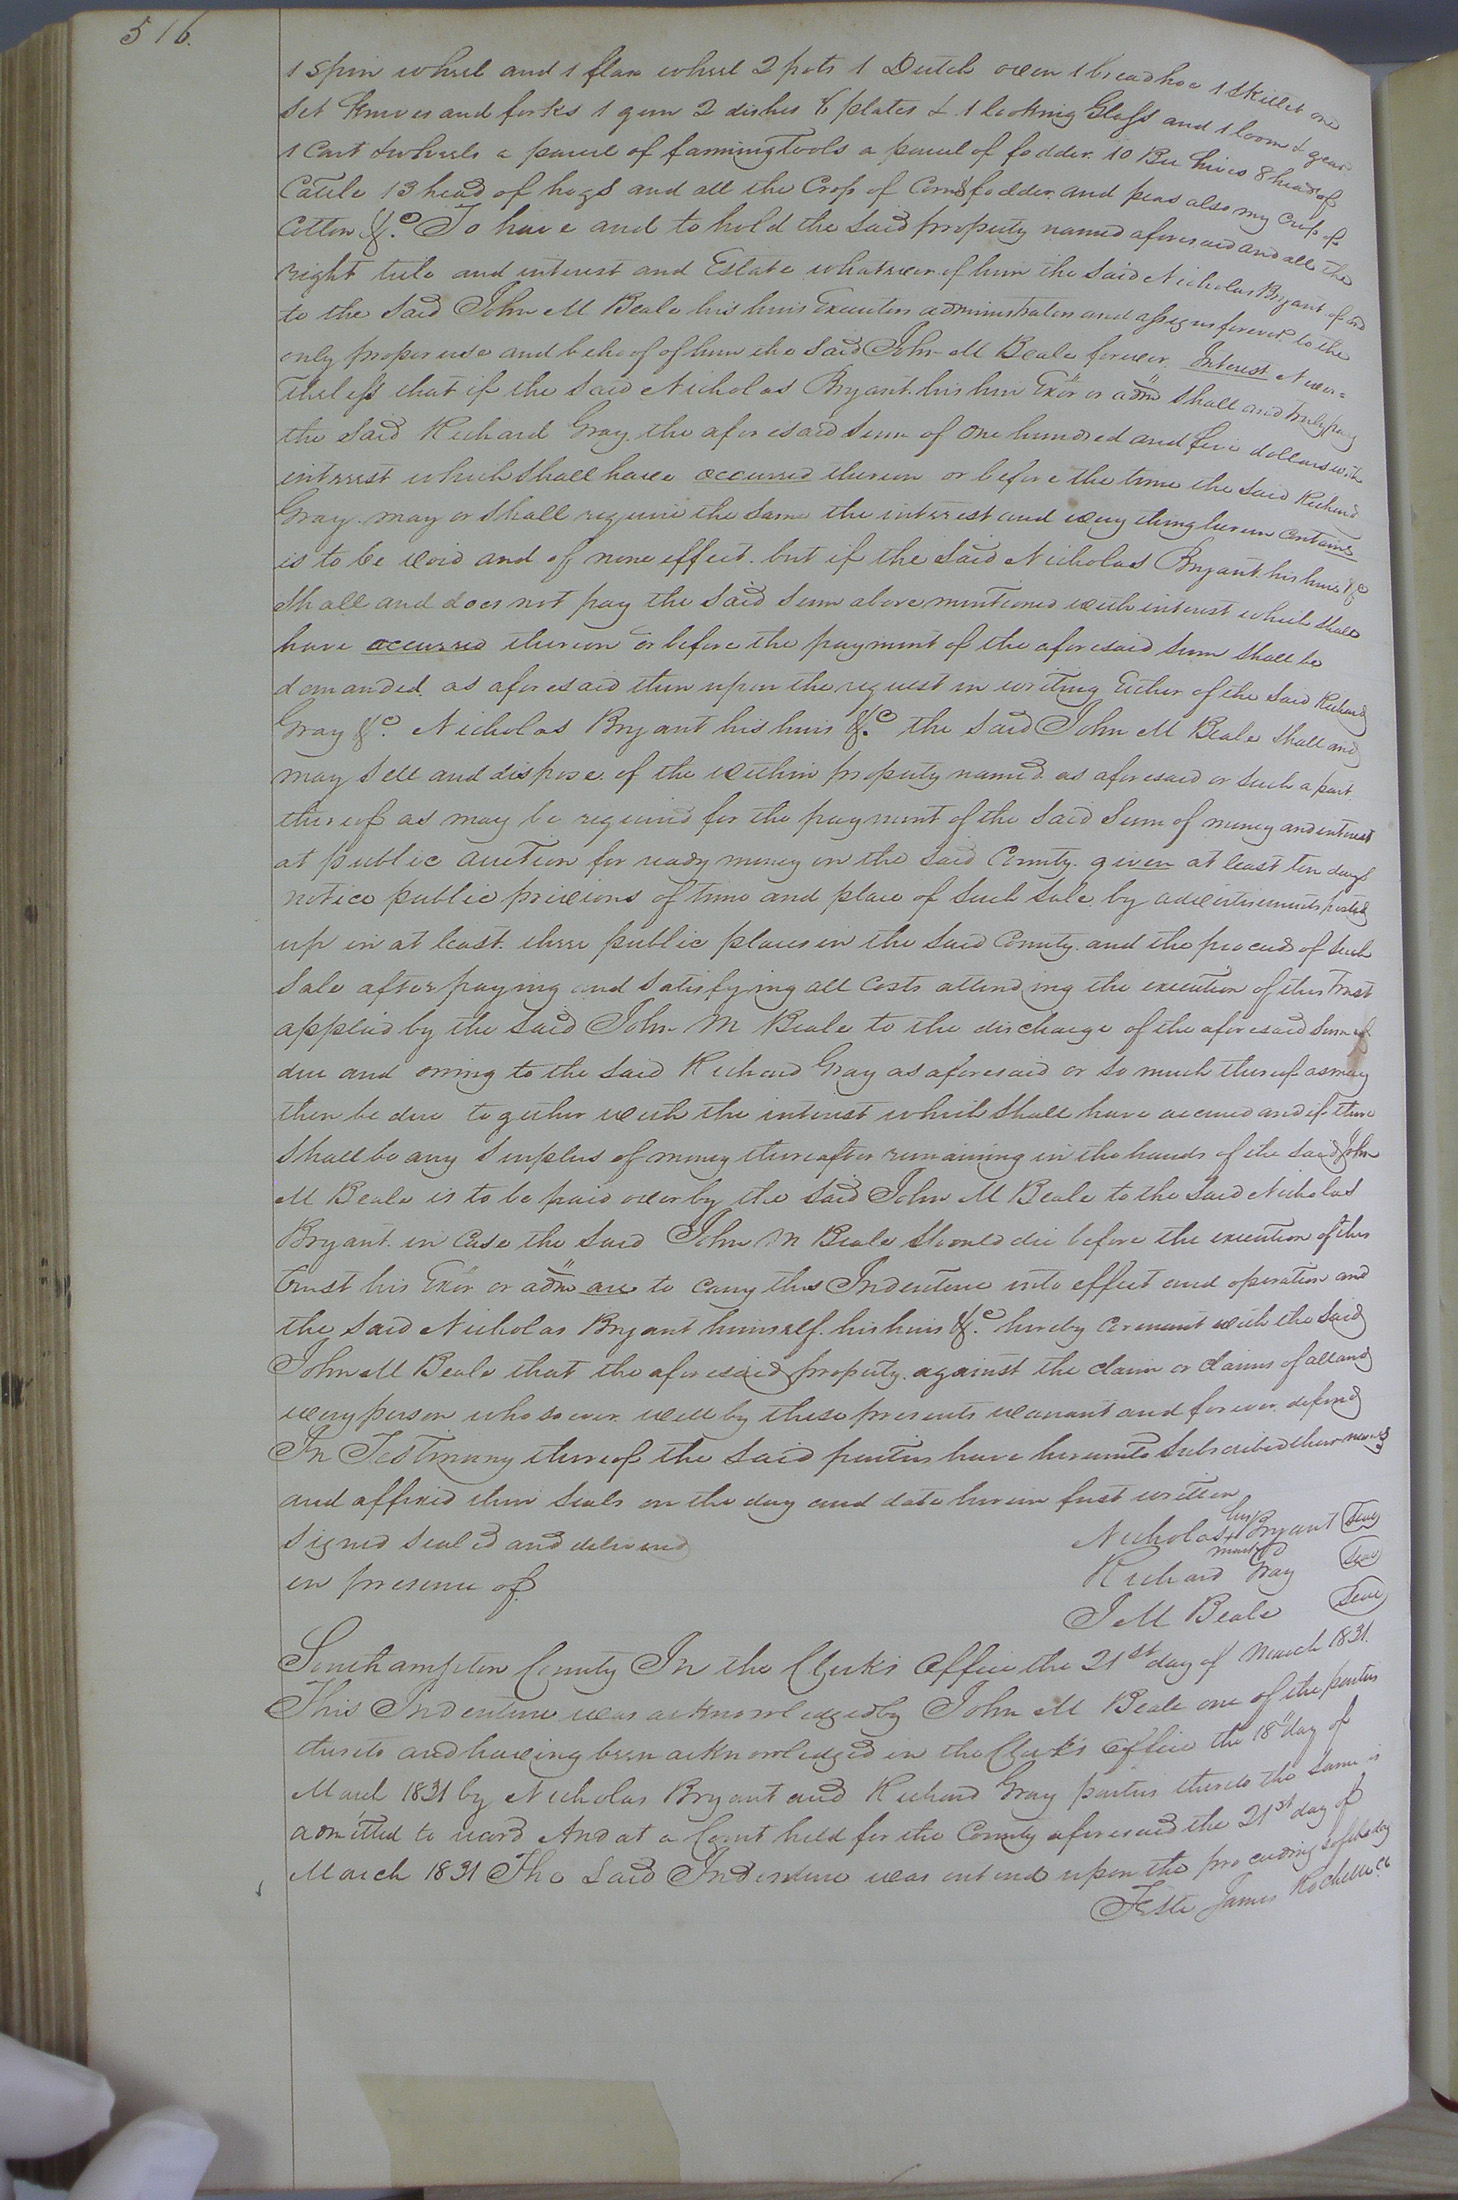 516.
1 Spin wheel and 1 flax wheel 2 pots 1 Dutch oven 1 broad hoe 1 skillet one
Set Knives and forks 1 gun 2 dishes 6 plates & 1 looking Glass and 1 loom & gear
1 Cart & wheels a parcel of farming Tools a parcel of fodder. 10 Bee hives 8 head of
Cattle 13 head of hogs and all the Crop of Corn & fodder. and peas also my Crop of
Cotton &c. To have and to hold the said property named aforesaid and all the
right title and interest and Estate whatever of him the said Nicholas Bryant of and
to the said John M Beale his heirs Executors administrators and assigns forever to the
only proper use and behoof of him the said John M Beale forever. Interest Never=
theless that if the said Nicholas Bryant. his heirs Exor or adm shall and truly pay
the said Richard Gray the aforesaid Sum of One hundred and five dollars with
interest which shall have occurred thereon or before the time the said Richard
Gray. may or shall require the same the interest and every thing herein contained
is to be void and of none effect. but if the said Nicholas Bryant. his heirs &c
shall and does not pay the said Sum above mentioned with interest which shall
have occurred thereon or before the payment of the aforesaid Sum shall be
demanded. as aforesaid then upon the request in writing Either of the said Richard
Gray &c. Nicholas Bryant his heirs &c. the said John M Beale shall and
may sell and dispose of the within property named as aforesaid or such a part.
thereof as may be required for the payment of the said Sum of money and interest
at public auction for ready money in the said County. given at least ten days
notice public previous of time and place of such sale by advertisements posted
up in at least. three public places in the said County. and the proceeds of such
Sale after paying and satisfying all Costs attending the execution of this trust
applied by the said John M Beale to the discharge of the aforesaid Sum of
due and oning to the said Richard Gray as aforesaid or so much thereof as may
then be due together with the interest which shall have accrued and if there
shall be any Surplus of money thereafter remaining in the hands of the said John
M Beale is to be paid over by the said John M Beale to the said Nicholas
Bryant. in Case the said John M Beale should die before the execution of this
trust his Exor or adm are to carry this Indenture into effect and operation and
the said Nicholas Bryant himself. his heirs &c. hereby covenant with the said
John M Beale that the aforesaid property. against the claim or claims of all and
every person whosoever. will by these presents warrant and forever. defend
In Testimony thereof the said parties have hereunto subscribed their names
and affixed their seals on the day and date herein first written
Signed sealed and delivered
in presence of.
Nicholas his + mark Bryant Seal
Richard Gray Seal
J M Beale Seal
Southampton County In the Clerk's Office the 21st day of March 1831.
This Indenture was acknowledged by John M Beale one of the parties
thereto and having been acknowledged in the Clerk's office the 18" day of
March 1831 by Nicholas Bryant and Richard Gray parties thereto the same is
admitted to record And at a Court held for the County aforesaid the 21st day of
March 1831 The said Indenture was entered upon the proceedings of the day
Teste James Rochelle Cc